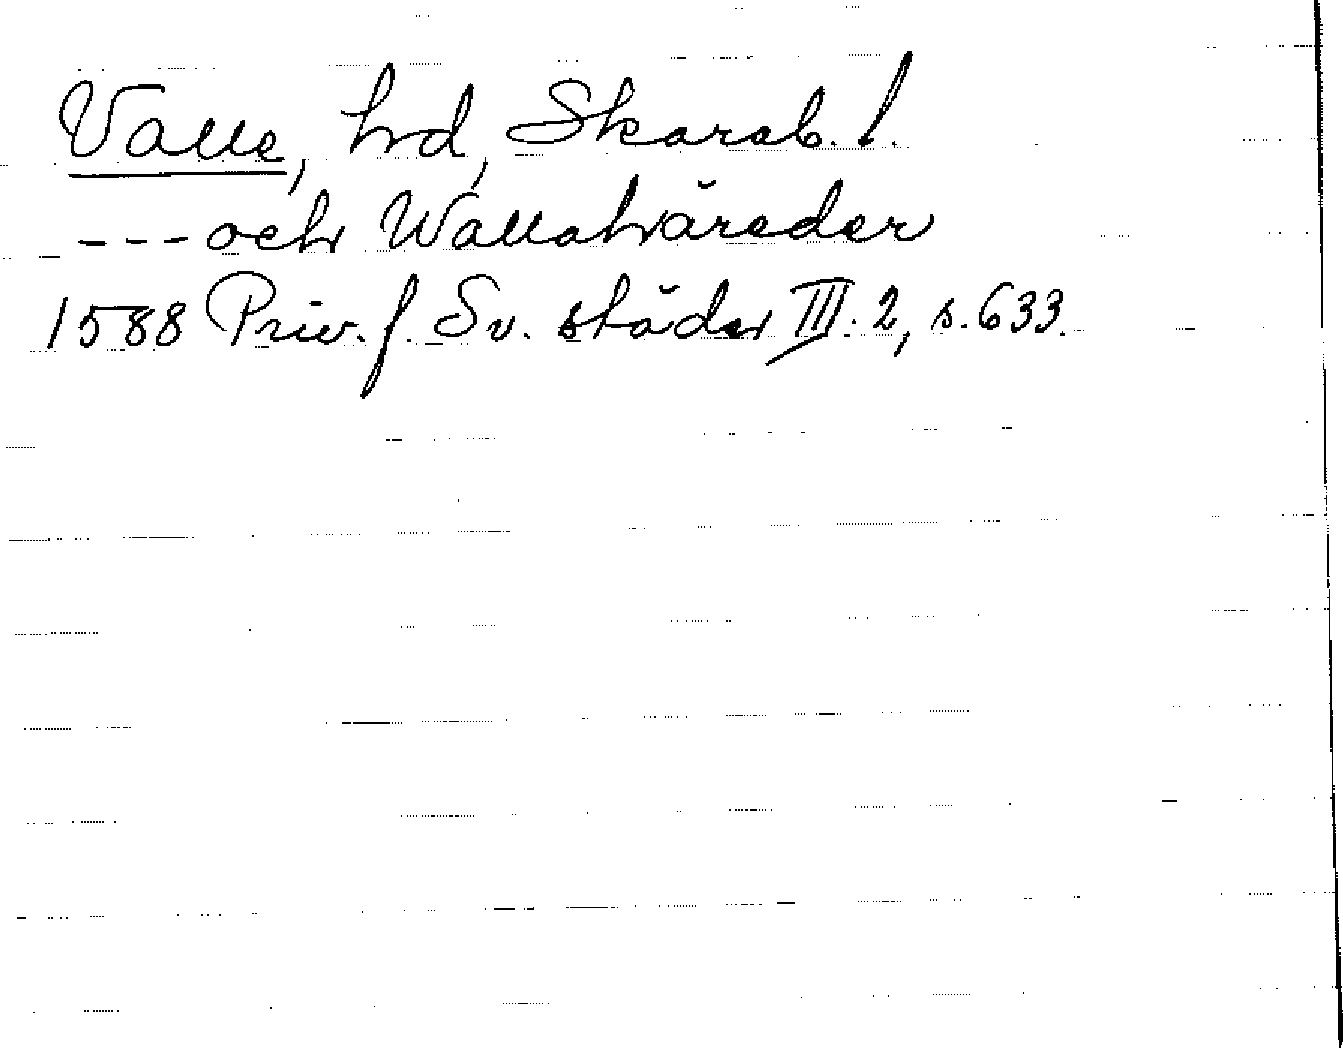 Valle, hd, Skarab. l.
--- och Wallahäreder
1588 Priv. f. Sv. städer III:2, s. 633.